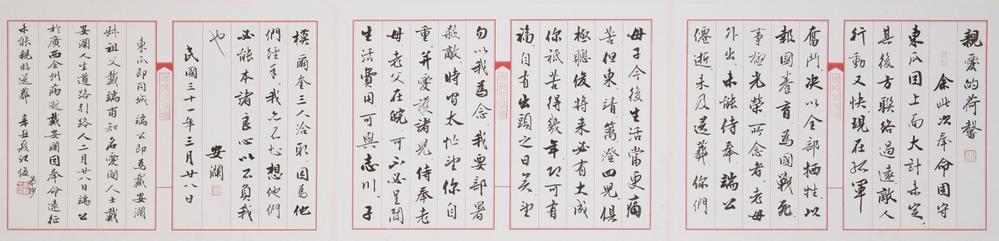 親愛的荷馨
余此次奉命固守
東瓜因上面大計未定
其後方聯絡過遠敵人
行動又快現在孤軍
奮鬥決以全部犧牲以
報國養育為國戰死
事極光榮所念者老母
外出未能侍奉端公
僊逝未及送葬你們
母子今後生活當更痛
苦但東靖籬澄四兒俱
極聰俊將來必有大成
你祇苦得幾年即可有
福自有出頭之日矣望
勿以我為念我要部署
殺敵時間太忙望你自
重並愛護諸兒侍奉老
母老父在皖可不必呈聞
生活費用可與志川子
模爾奎三人洽取因為他
們經手我亦不想他們
必能本諸良心以不負我
也
安瀾
民國三十一年三月廿八日
東瓜即同城端公即為戴安瀾
叔祖父戴端甫知名愛國人士戴
安瀾人生道路引路人二月廿八日端公
於廣西全州病故戴安瀾因奉命遠征
未能親臨送葬